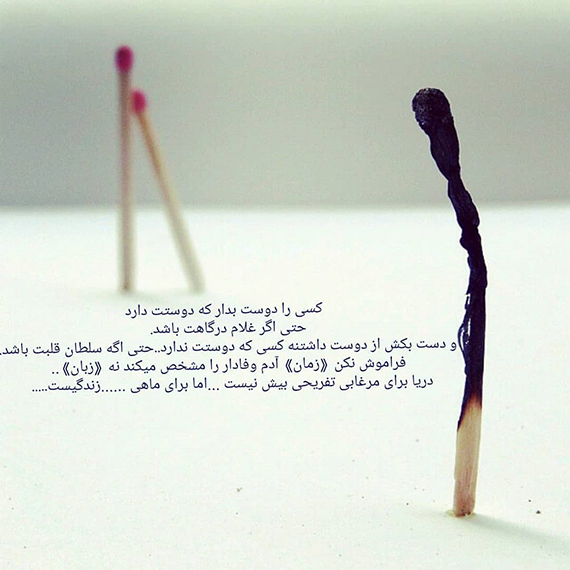 کسی را دوست بدار که دوستت دارد
حتی اگر غلام درگاهت باشد.
و دست بکش از دوست داشتنه کسی که دوستت ندارد..حتی اگه سلطان قلبت باشد.
فراموش نکن《زمان》آدم وفادار را مشخص میکند نه《زبان》..
دریا برای مرغابی تفریحی بیش نیست ...اما برای ماهی ......زندگیست.....